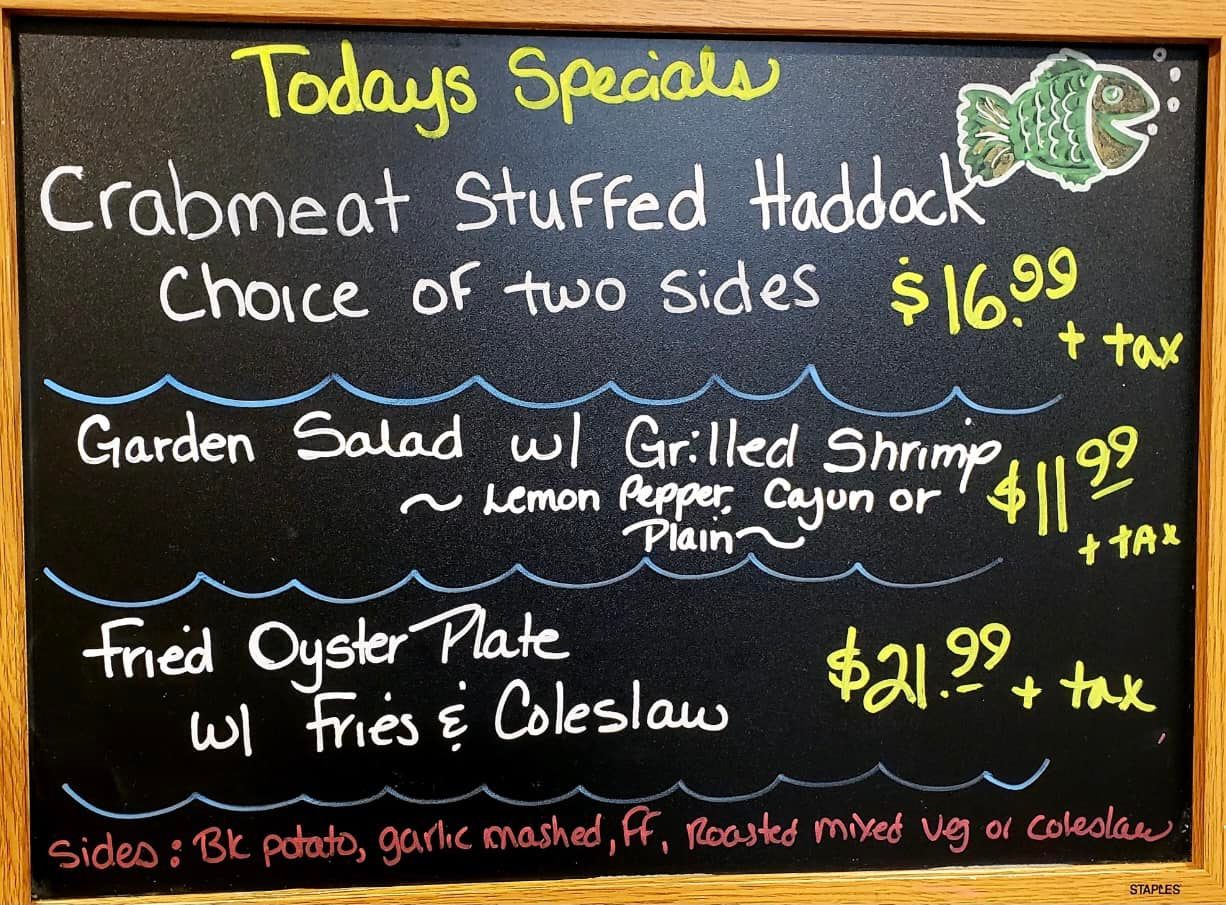 Todays Specials
Crabmeat Stuffed Haddock
Choice of two sides $16.99
+ tax
Garden Salad w/ Grilled Shrimp $11 99
~ Lemon Pepper, Cajun or
Plain ~
+ tax
Fried Oyster Plate $21.99 + tax
w/ Fries & Coleslaw
Sides: Bk potato, garlic mashed, FF, Roasted mixed veg or coleslaw
STAPLES